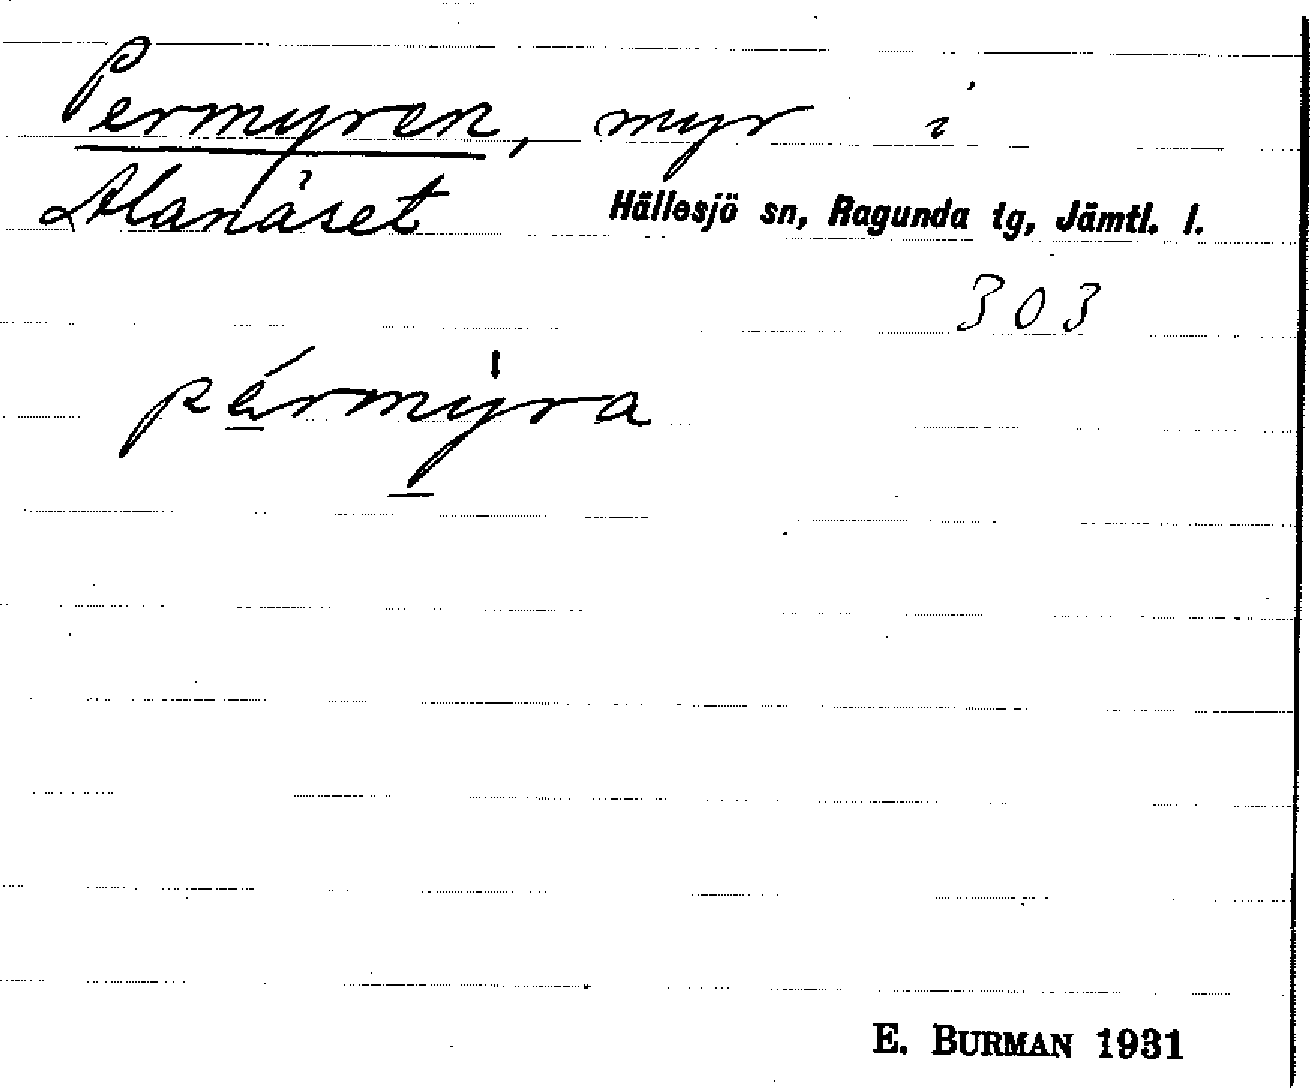 Permyren, myr i
Alanäset Hällesjö sn, Ragunda tg, Jämtl. l.
303
pérmyra
E. BURMAN 1931